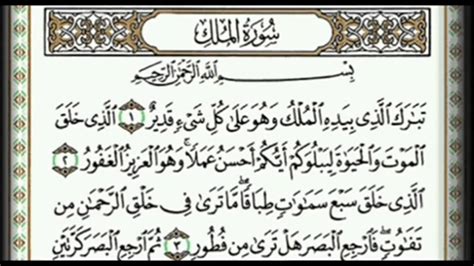 سُورَةُ المُلْكِ
بِسْمِ اللَّهِ الرَّحْمَٰنِ الرَّحِيمِ
تَبَارَكَ الَّذِي بِيَدِهِ الْمُلْكُ وَهُوَ عَلَىٰ كُلِّ شَيْءٍ قَدِيرٌ ١ الَّذِي خَلَقَ
الْمَوْتَ وَالْحَيَوٰةَ لِيَبْلُوَكُمْ أَيُّكُمْ أَحْسَنُ عَمَلًا ۚ وَهُوَ الْعَزِيزُ الْغَفُورُ ٢
الَّذِي خَلَقَ سَبْعَ سَمَٰوَٰتٍ طِبَاقًا ۖ مَّا تَرَىٰ فِي خَلْقِ الرَّحْمَٰنِ مِن
تَفَٰوُتٍ ۖ فَارْجِعِ الْبَصَرَ هَلْ تَرَىٰ مِن فُطُورٍ ٣ ثُمَّ ارْجِعِ الْبَصَرَ كَرَّتَيْنِ